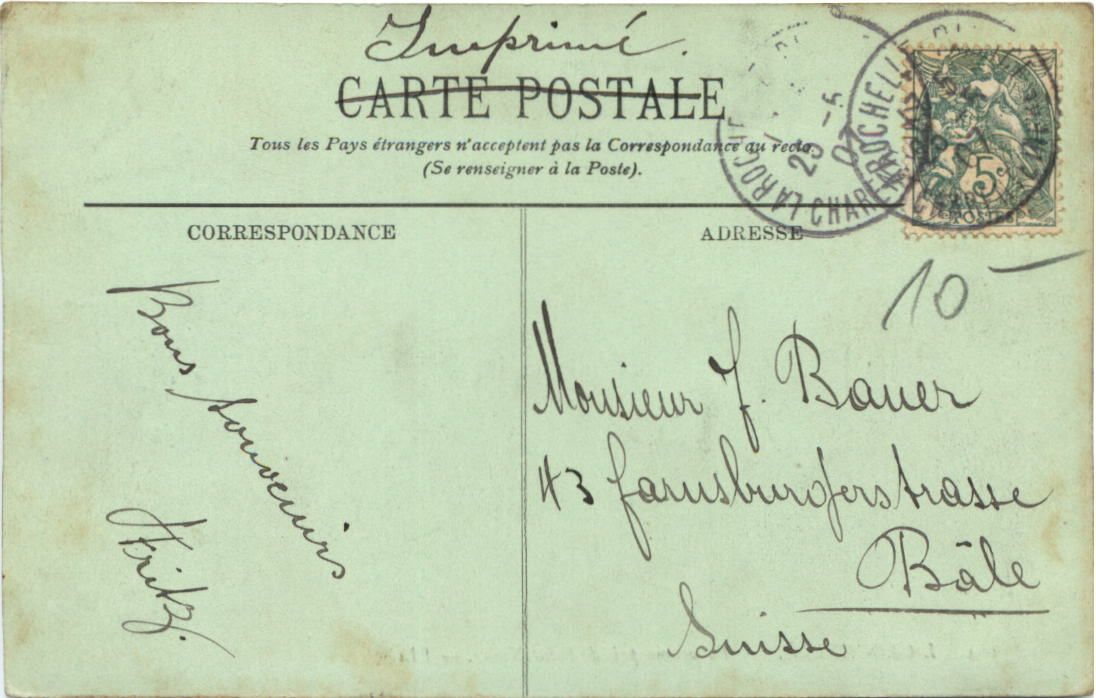 Imprimé.
CARTE POSTALE
Tous les Pays étrangers n'acceptent pas la Correspondance au recto.
(Se renseigner à la Poste).
LA ROCHE
25 -5
07
CHAR
ROCHELLE
5c
POSTES
CORRESPONDANCE
ADRESSE
10 —
Bons souvenirs
Fritz.
Monsieur J. Bauer
43 Farnsburgerstrasse
Bâle
Suisse